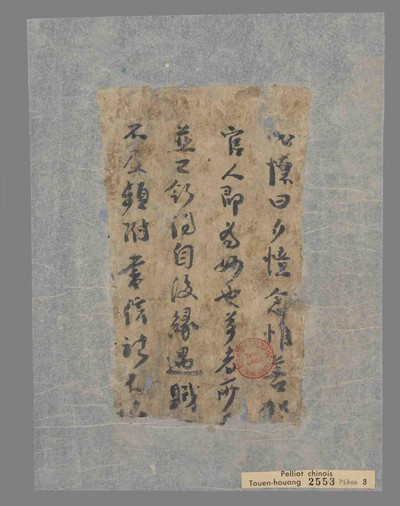 懷日夕憶念惟善加
官人即為妙也前者所
並已領得自後緣遇賊
不及頻附書信訪
Pelliot chinois
Touen-houang 2553 Pièce 3